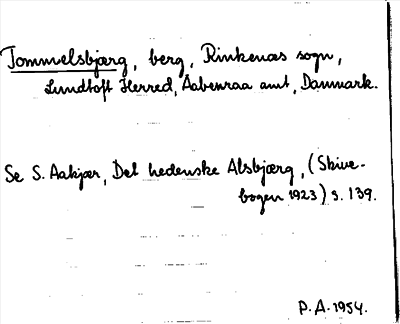 Tommelsbjærg, berg, Rinkenæs sogn,
Lundtoft Herred, Aabenraa amt, Danmark.
Se S. Aakjær, Det hedenske Alsbjærg, (Skive-
bogen 1923) s. 139.
P.A. 1954.